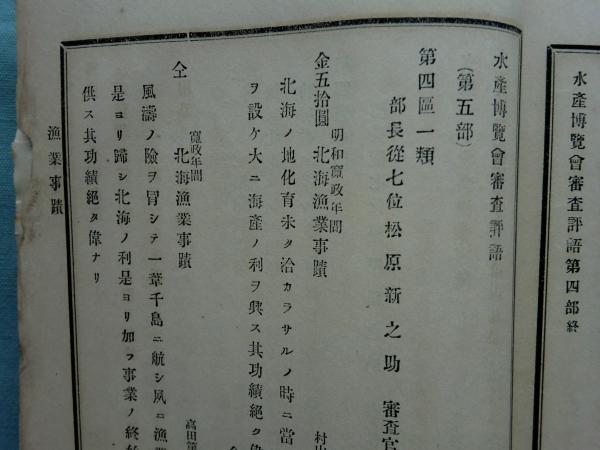 水產博覽會審查評語第四部終
水產博覽會審查評語
(第五部)
第四區一類
部長從七位松原新之助 審查官
金五拾圓 明和寬政年間 北海漁業事蹟 村山
北海ノ地化育未タ洽カラサルノ時ニ當
ヲ設ケ大ニ海產ノ利ヲ興ス其功績絕タ偉
仝 寬政年間 北海漁業事蹟 高田
風濤ノ險ヲ冒シテ一葦千島ニ航シ夙ニ漁
是ヨリ歸シ北海ノ利是ヨリ加フ事業ノ終始
供ス其功績絕タ偉ナリ
漁業事蹟